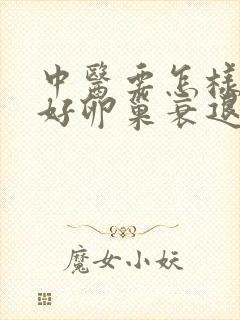 中醫需怎樣
好卵巢衰退
魔女小妖